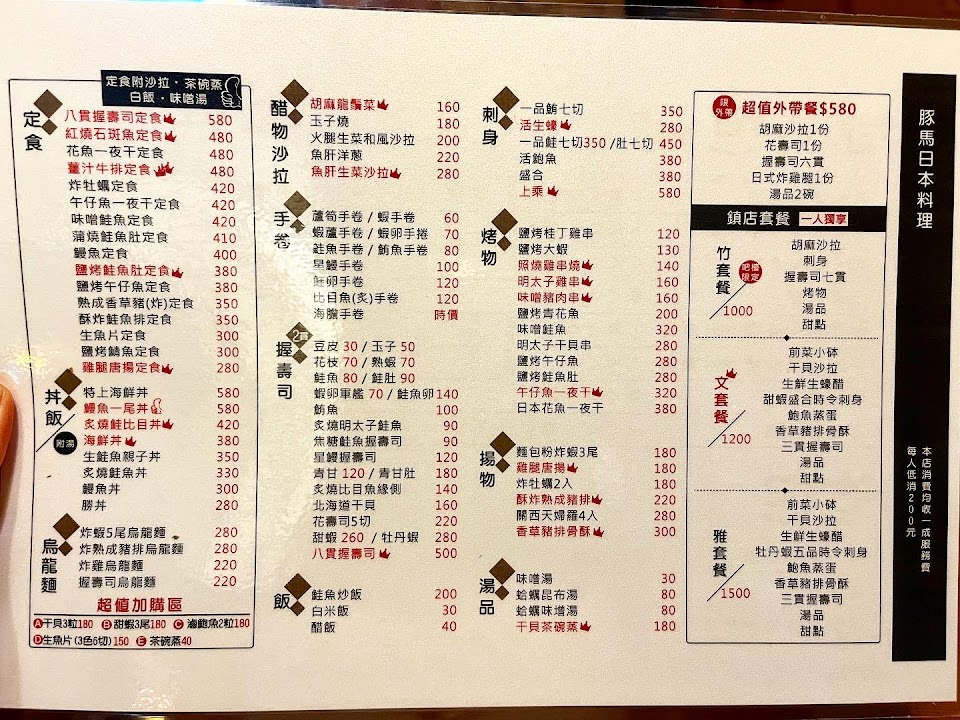 定食附沙拉・茶碗蒸
白飯・味噌湯
定食
八貫握壽司定食 580
紅燒石斑魚定食 480
花魚一夜干定食 480
薑汁牛排定食 480
炸牡蠣定食 420
午仔魚一夜干定食 420
味噌鮭魚定食 420
蒲燒鮭魚肚定食 410
鰻魚定食 400
鹽烤鮭魚肚定食 380
鹽烤午仔魚定食 380
熟成香草豬(炸)定食 350
酥炸鮭魚排定食 350
生魚片定食 300
鹽烤鯖魚定食 300
雞腿唐揚定食 280
丼飯
附湯
特上海鮮丼 580
鰻魚一尾丼 580
炙燒鮭比目丼 420
海鮮丼 380
生鮭魚親子丼 350
炙燒鮭魚丼 330
鰻魚丼 300
勝丼 280
烏龍麵
炸蝦5尾烏龍麵 280
炸熟成豬排烏龍麵 280
炸雞烏龍麵 220
握壽司烏龍麵 220
超值加購區
A干貝3粒180 B甜蝦3尾180 C滷鮑魚2粒180
D生魚片(3色6切)150 E茶碗蒸40
醋物沙拉
胡麻龍鬚菜 160
玉子燒 180
火腿生菜和風沙拉 200
魚肝洋蔥 220
魚肝生菜沙拉 280
手卷
蘆筍手卷 / 蝦手卷 60
蝦蘆手卷 / 蝦卵手捲 70
鮭魚手卷 / 鮪魚手卷 80
星鰻手卷 100
鮭卵手卷 120
比目魚(炙)手卷 120
海膽手卷 時價
握壽司
2貫
豆皮 30 / 玉子 50
花枝 70 / 熟蝦 70
鮭魚 80 / 鮭肚 90
蝦卵軍艦 70 / 鮭魚卵140
鮪魚 100
炙燒明太子鮭魚 90
焦糖鮭魚握壽司 90
星鰻握壽司 120
青甘 120 / 青甘肚 180
炙燒比目魚緣側 140
北海道干貝 160
花壽司5切 220
甜蝦 260 / 牡丹蝦 280
八貫握壽司 500
飯
鮭魚炒飯 200
白米飯 30
醋飯 40
刺身
一品鮪七切 350
活生蠔 280
一品鮭七切350 /肚七切 450
活鮑魚 380
盛合 380
上乘 580
烤物
鹽烤桂丁雞串 120
鹽烤大蝦 130
照燒雞串燒 140
明太子雞串 160
味噌豬肉串 160
鹽烤青花魚 200
味噌鮭魚 320
明太子干貝串 280
鹽烤午仔魚 280
鹽烤鮭魚肚 280
午仔魚一夜干 320
日本花魚一夜干 380
揚物
麵包粉炸蝦3尾 180
雞腿唐揚 180
炸牡蠣2入 180
酥炸熟成豬排 220
關西天婦羅4入 280
香草豬排骨酥 300
湯品
味噌湯 30
蛤蠣昆布湯 80
蛤蠣味噌湯 80
干貝茶碗蒸 180
限外帶
超值外帶餐$580
胡麻沙拉1份
花壽司1份
握壽司六貫
日式炸雞腿1份
湯品2碗
鎮店套餐 一人獨享
竹套餐
吧檯限定
1000
胡麻沙拉
刺身
握壽司七貫
烤物
湯品
甜點
文套餐
1200
前菜小砵
干貝沙拉
生鮮生蠔醋
甜蝦盛合時令刺身
鮑魚蒸蛋
香草豬排骨酥
三貫握壽司
湯品
甜點
雅套餐
1500
前菜小砵
干貝沙拉
生鮮生蠔醋
牡丹蝦五品時令刺身
鮑魚蒸蛋
香草豬排骨酥
三貫握壽司
湯品
甜點
豚馬日本料理
本店消費均收一成服務費
每人低消200元